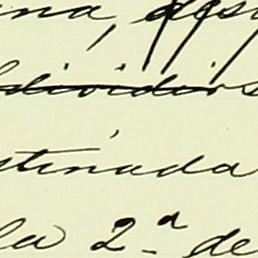 na,
dividir
tinada
la 2.ª de